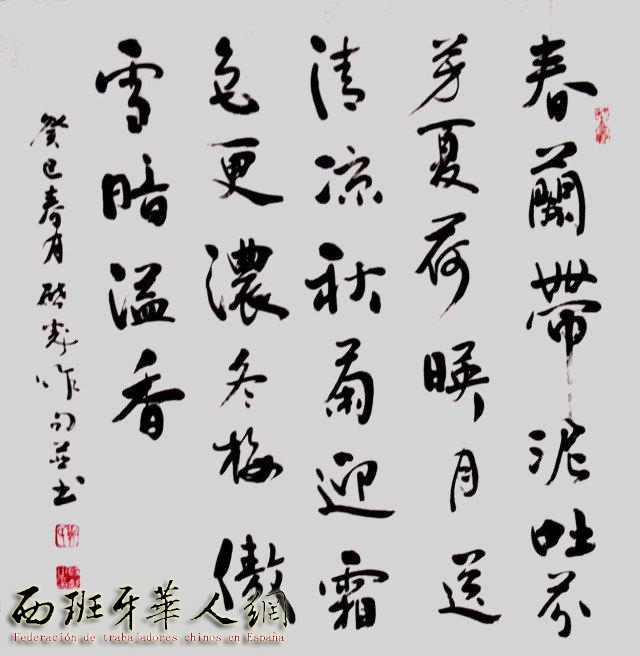 春蘭帶泥吐芬
芳夏荷暎月送
清凉秋菊迎霜
色更濃冬梅傲
雪暗溢香
癸巳春月作句並书
西班牙華人網
Federación de trabajadores chinos en España